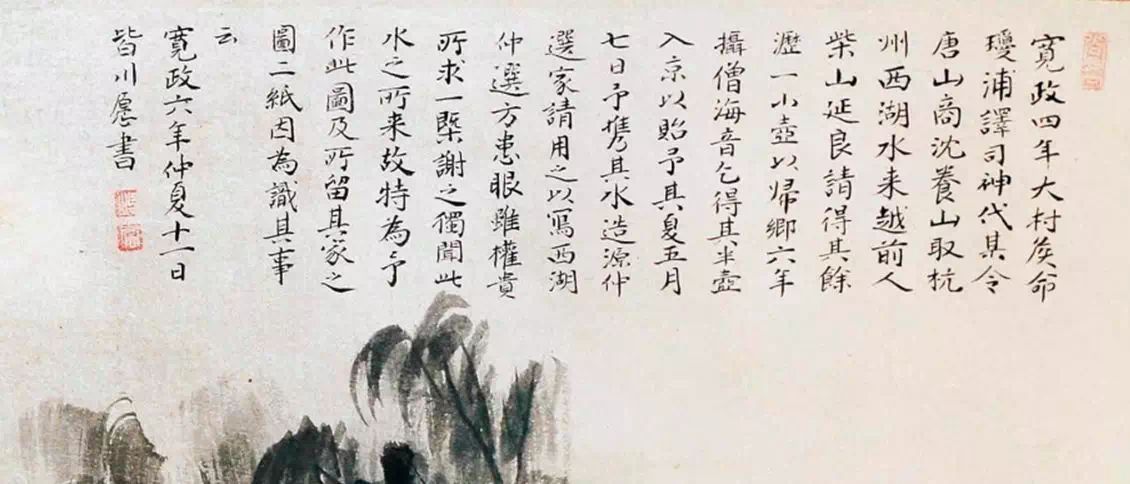 寛政四年大村矦命
瓊浦譯司神代某令
唐山商沈養山取杭
州西湖水来越前人
柴山延良請得其餘
瀝一小壺以帰郷六年
攝僧海音乞得其半壺
入京以貽予其夏五月
七日予携其水造源仲
選家請用之以寫西湖
仲選方患眼雖權貴
所求一槩謝之獨聞此
水之所来故特為予
作此圖及所留其家之
圖二紙因為識其事
云
寛政六年仲夏十一日
皆川愿書